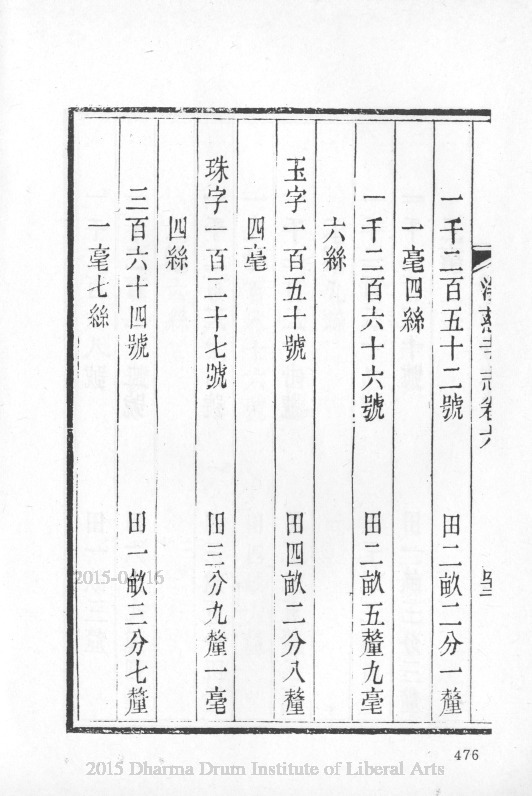 寺志卷六
一千二百五十二號 田二畝二分一釐
一毫四絲
一千二百六十六號 田二畝五釐九毫
六絲
玉字一百五十號 田四畝二分八釐
四毫
珠字一百二十七號 田三分九釐一毫
四絲
三百六十四號 田一畝三分七釐
一毫七絲
476
2015 Dharma Drum Institute of Liberal Arts